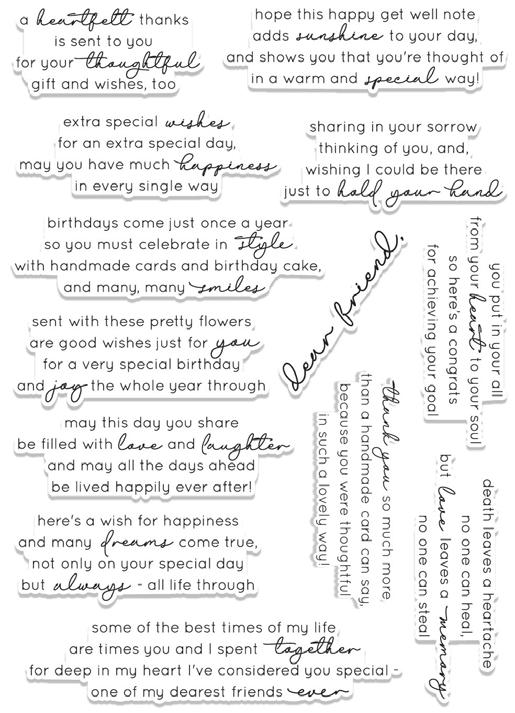 a heartfelt thanks
is sent to you
for your thoughtful
gift and wishes, too
hope this happy get well note
adds sunshine to your day,
and shows you that you're thought of
in a warm and special way!
extra special wishes,
for an extra special day,
may you have much happiness
in every single way
sharing in your sorrow
thinking of you, and,
wishing I could be there
just to hold your hand
birthdays come just once a year
so you must celebrate in style
with handmade cards and birthday cake,
and many, many smiles
dear friend,
you put in your all
from your heart to your soul
so here's a congrats
for achieving your goal
sent with these pretty flowers
are good wishes just for you
for a very special birthday
and joy the whole year through
thank you so much more,
than a handmade card can say,
because you were thoughtful
in such a lovely way!
may this day you share
be filled with love and laughter
and may all the days ahead
be lived happily ever after!
death leaves a heartache
no one can heal,
but love leaves a memory
no one can steal
here's a wish for happiness
and many dreams come true,
not only on your special day
but always - all life through
some of the best times of my life
are times you and I spent together
for deep in my heart I've considered you special -
one of my dearest friends ever